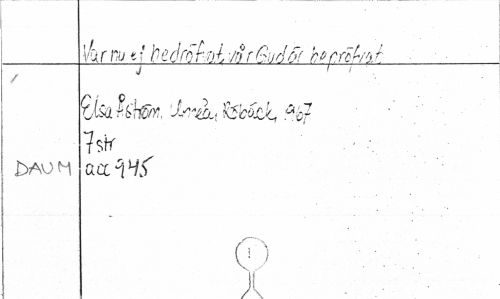 Var nu ej bedröfvat, vår Gud är bepröfvat
Elsa Åström, Umeå, Röbäck, 967
7 str
DAUM acc 945